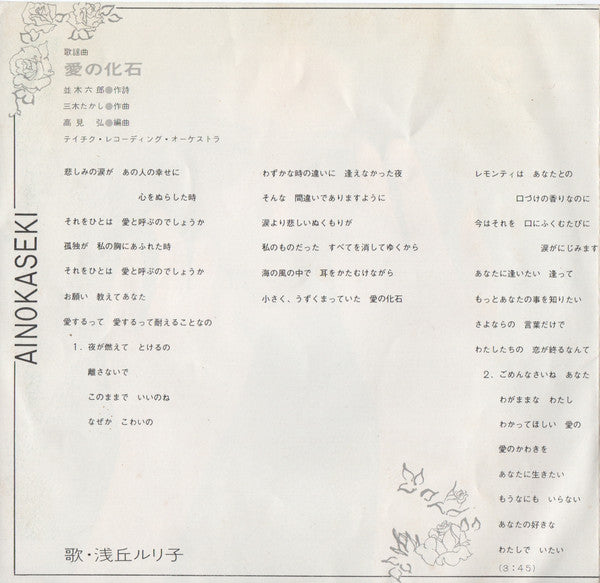 歌謡曲
愛の化石
並木六郎●作詩
三木たかし●作曲
高見 弘●編曲
テイチク・レコーディング・オーケストラ
AINOKASEKI
悲しみの涙が あの人の幸せに
心をぬらした時
それをひとは 愛と呼ぶのでしょうか
孤独が 私の胸にあふれた時
それをひとは 愛と呼ぶのでしょうか
お願い 教えてあなた
愛するって 愛するって耐えることなの
1. 夜が燃えて とけるの
離さないで
このままで いいのね
なぜか こわいの
わずかな時の違いに 逢えなかった夜
そんな 間違いでありますように
涙より悲しいぬくもりが
私のものだった すべてを消してゆくから
海の風の中で 耳をかたむけながら
小さく、うずくまっていた 愛の化石
レモンティは あなたとの
口づけの香りなのに
今はそれを 口にふくむたびに
涙がにじみます
あなたに逢いたい 逢って
もっとあなたの事を知りたい
さよならの 言葉だけで
わたしたちの 恋が終るなんて
2. ごめんなさいね あなた
わがままな わたし
わかってほしい 愛の
愛のかわきを
あなたに生きたい
もうなにも いらない
あなたの好きな
わたしで いたい
(3:45)
歌・浅丘ルリ子